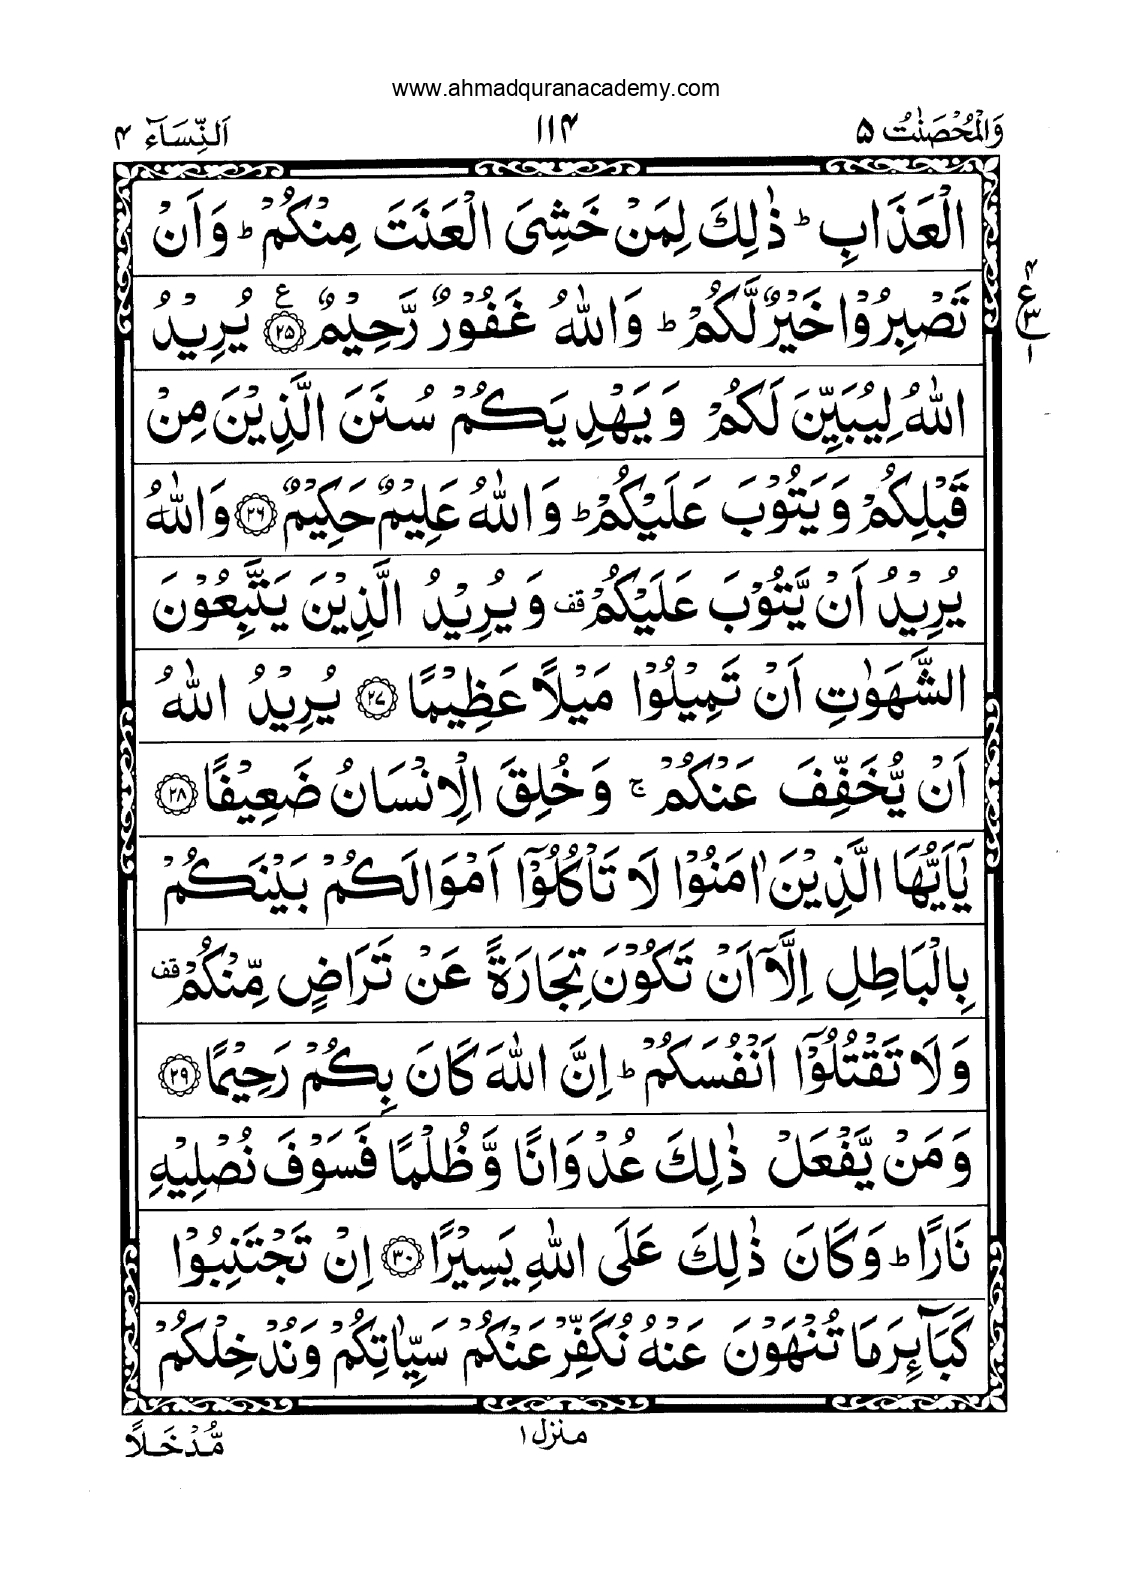 www.ahmadquranacademy.com
وَالْمُحْصَنٰتُ ۵ ۱۱۴ اَلنِّسَآء ۴
الْعَذَابِ ؕ ذٰلِكَ لِمَنْ خَشِىَ الْعَنَتَ مِنْكُمْ ؕ وَاَنْ
تَصْبِرُوْا خَيْرٌ لَّكُمْ ؕ وَاللّٰهُ غَفُوْرٌ رَّحِيْمٌ ۲۵ ع يُرِيْدُ
۴ ع ۳ ۱
اللّٰهُ لِيُبَيِّنَ لَكُمْ وَيَهْدِيَكُمْ سُنَنَ الَّذِيْنَ مِنْ
قَبْلِكُمْ وَيَتُوْبَ عَلَيْكُمْ ؕ وَاللّٰهُ عَلِيْمٌ حَكِيْمٌ ۲۶ وَاللّٰهُ
يُرِيْدُ اَنْ يَّتُوْبَ عَلَيْكُمْ قف وَيُرِيْدُ الَّذِيْنَ يَتَّبِعُوْنَ
الشَّهَوٰتِ اَنْ تَمِيْلُوْا مَيْلًا عَظِيْمًا ۲۷ يُرِيْدُ اللّٰهُ
اَنْ يُّخَفِّفَ عَنْكُمْ ۚ وَخُلِقَ الْاِنْسَانُ ضَعِيْفًا ۲۸
يٰۤاَيُّهَا الَّذِيْنَ اٰمَنُوْا لَا تَاْكُلُوْۤا اَمْوَالَكُمْ بَيْنَكُمْ
بِالْبَاطِلِ اِلَّاۤ اَنْ تَكُوْنَ تِجَارَةً عَنْ تَرَاضٍ مِّنْكُمْ قف
وَلَا تَقْتُلُوْۤا اَنْفُسَكُمْ ؕ اِنَّ اللّٰهَ كَانَ بِكُمْ رَحِيْمًا ۲۹
وَمَنْ يَّفْعَلْ ذٰلِكَ عُدْوَانًا وَّظُلْمًا فَسَوْفَ نُصْلِيْهِ
نَارًا ؕ وَكَانَ ذٰلِكَ عَلَى اللّٰهِ يَسِيْرًا ۳۰ اِنْ تَجْتَنِبُوْا
كَبَآئِرَ مَا تُنْهَوْنَ عَنْهُ نُكَفِّرْ عَنْكُمْ سَيِّاٰتِكُمْ وَنُدْخِلْكُمْ
منزل ۱ مُّدْخَلًا